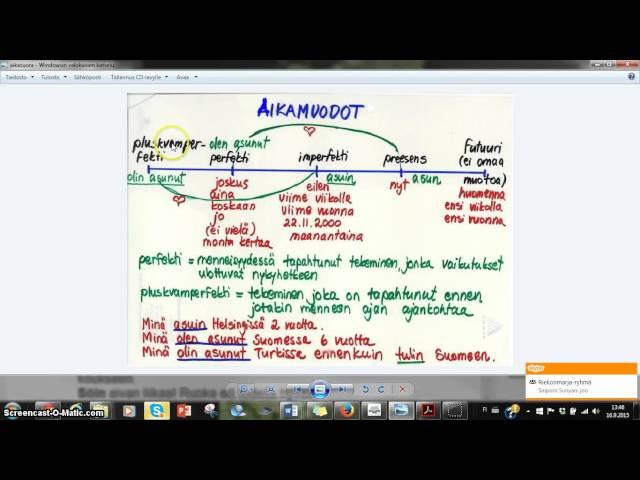 aikasuora - Windowsin valokuvien katselu
Tiedosto Tulosta Sähköposti Tallennus CD-levylle Avaa
AIKAMUODOT
pluskvamper-
fekti
olen asunut
perfekti
imperfekti
preesens
futuuri
(ei omaa
muotoa)
olin asunut
joskus
aina
koskaan
jo
(ei vielä)
monta kertaa
asuin
eilen
viime viikolla
viime vuonna
22.11.2000
maanantaina
nyt asun
huomenna
ensi viikolla
ensi vuonna
perfekti = menneisyydessä tapahtunut tekeminen, jonka vaikutukset
ulottuvat nykyhetkeen
pluskvamperfekti = tekeminen joka on tapahtunut ennen
jotakin menneen ajan ajankohtaa
Minä asuin Helsingissä 2 vuotta.
Minä olen asunut Suomessa 6 vuotta
Minä olin asunut Turkissa ennenkuin tulin Suomeen.
skype
Riekonmarja-ryhmä
Screencast-O-Matic.com
FI
13:46
16.9.2015